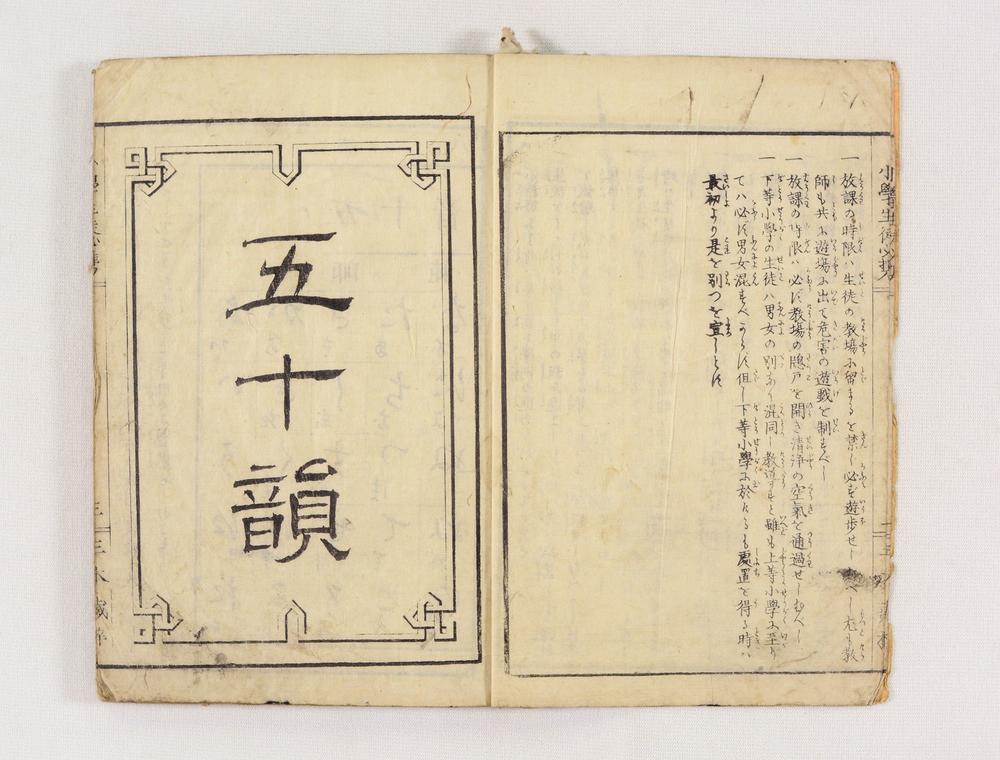 小學生徒心得
一放課の時限ハ生徒の教場に留まるを禁し必す遊歩せしむへし尤も教
師も共に遊場に出て危害の遊戯を制すへし
一放課の時限ハ必す教場の牕戸を開き清浄の空氣を通過せしむへし
一下等小學の生徒ハ男女の別なく混同し教道すと雖も上等小學に至り
てハ必す男女混すへからす但し下等小學に於けるも處置を得る時ハ
最初より是を別つを宜しとす
五十韻